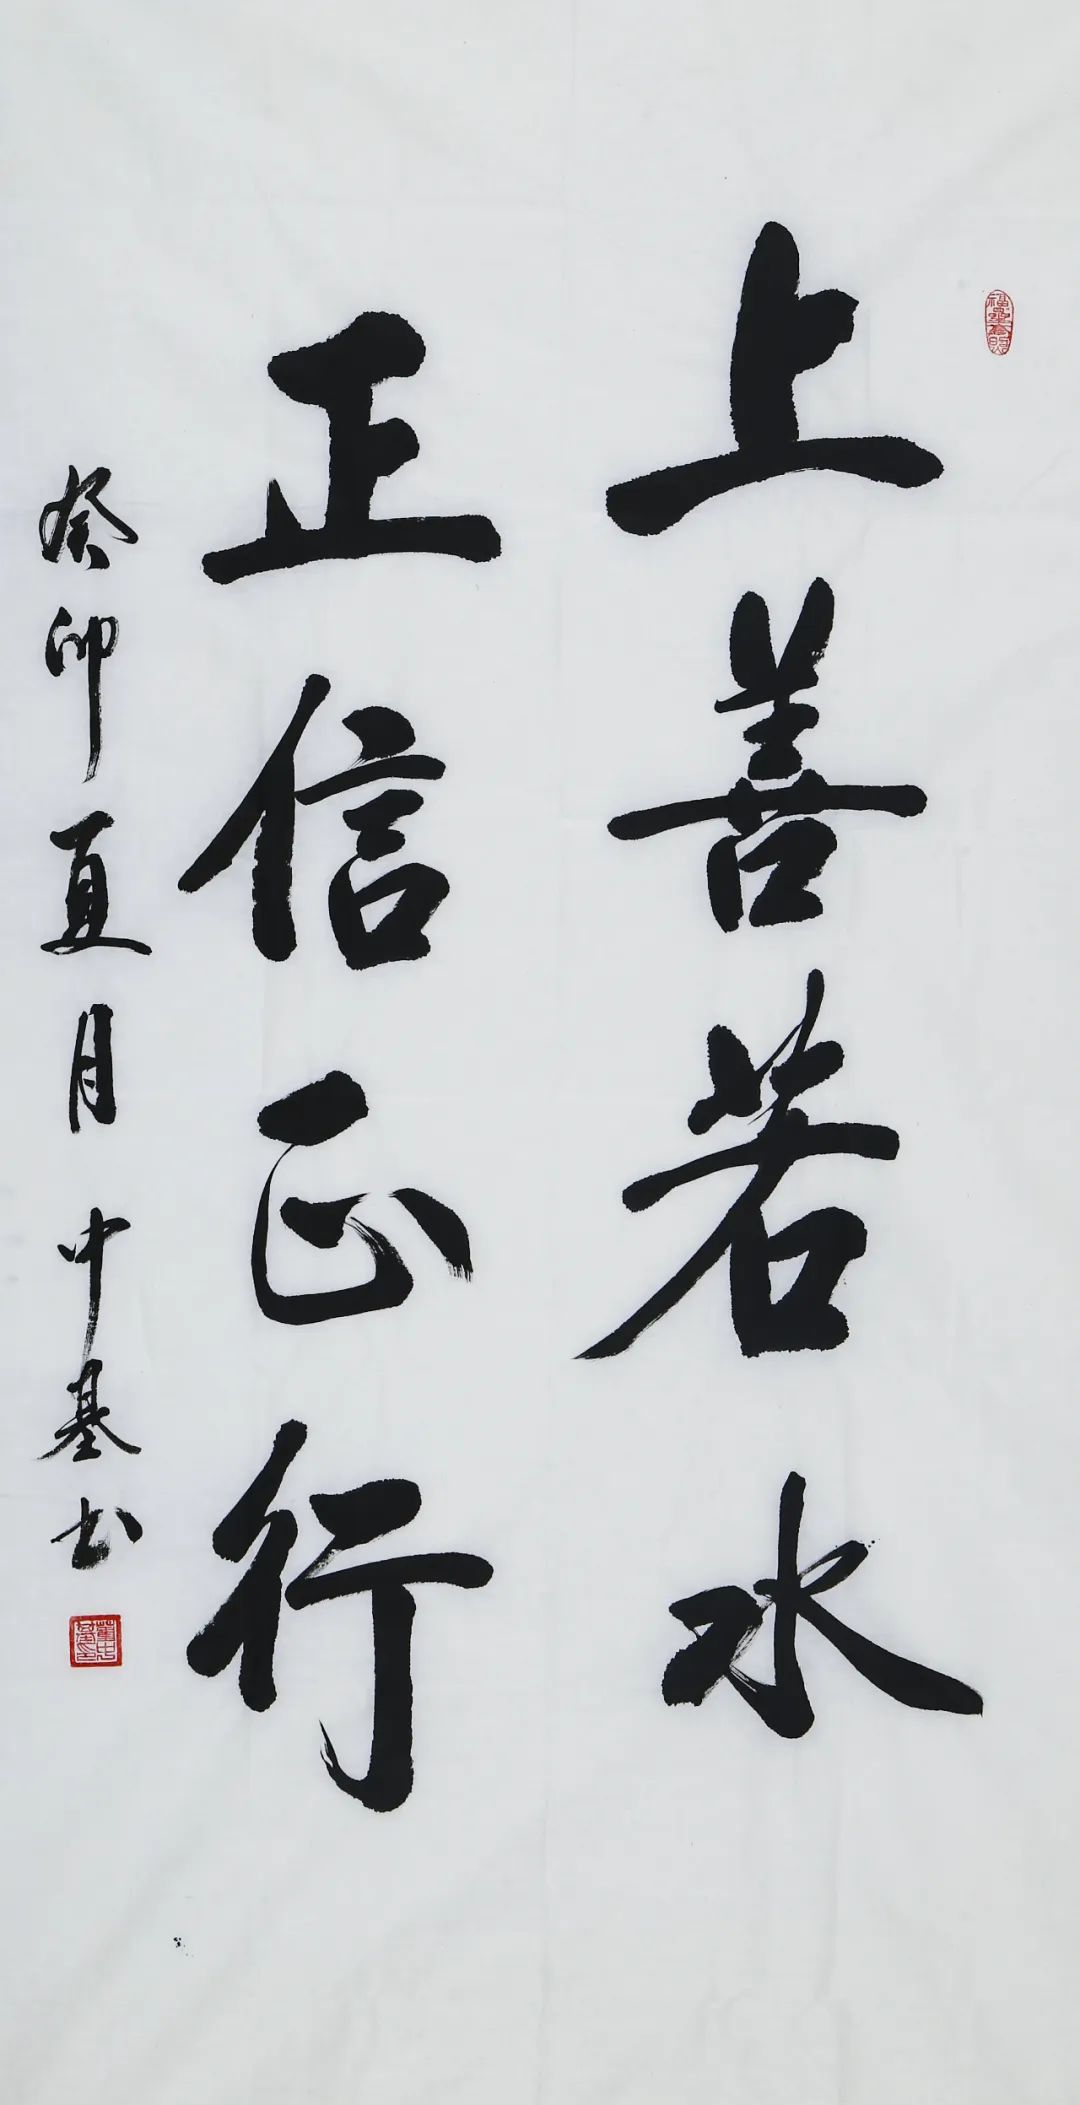 上善若水
正信正行
癸卯夏月中基书